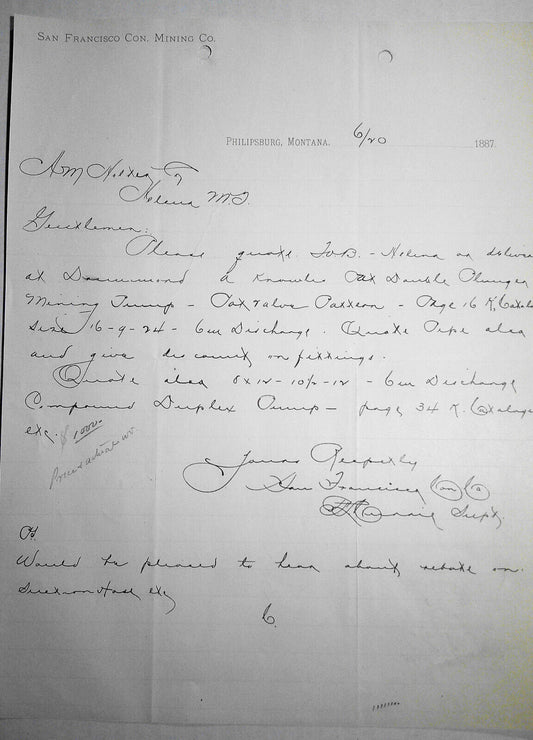 San Francisco Con. Mining Co.
Philipsburg, Montana. 6/20 1887.
A M Holter
Helena M.T.
Gentlemen:
Please quote FOB. - Helena or deliver
at Drummond a Knowles Pat Double Plunger
Mining Pump - Pot Valve Pattern - Page 16 K. Catalo
size 16-9-24 - 6 in Discharge. Quote Pipe also
and give discounts on fittings.
Quote also 8x12-10½-12 - 6 in Discharge
Compound Duplex Pump - page 34 K. Catalogue
etc. $1000.
Yours Respctly
San Francisco Con Co
Supt
Would be pleased to hear about rebate on
Suction Hose etc